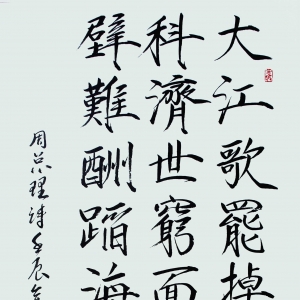 大江歌罷掉
科濟世窮面
壁難酬蹈海
周总理诗壬辰